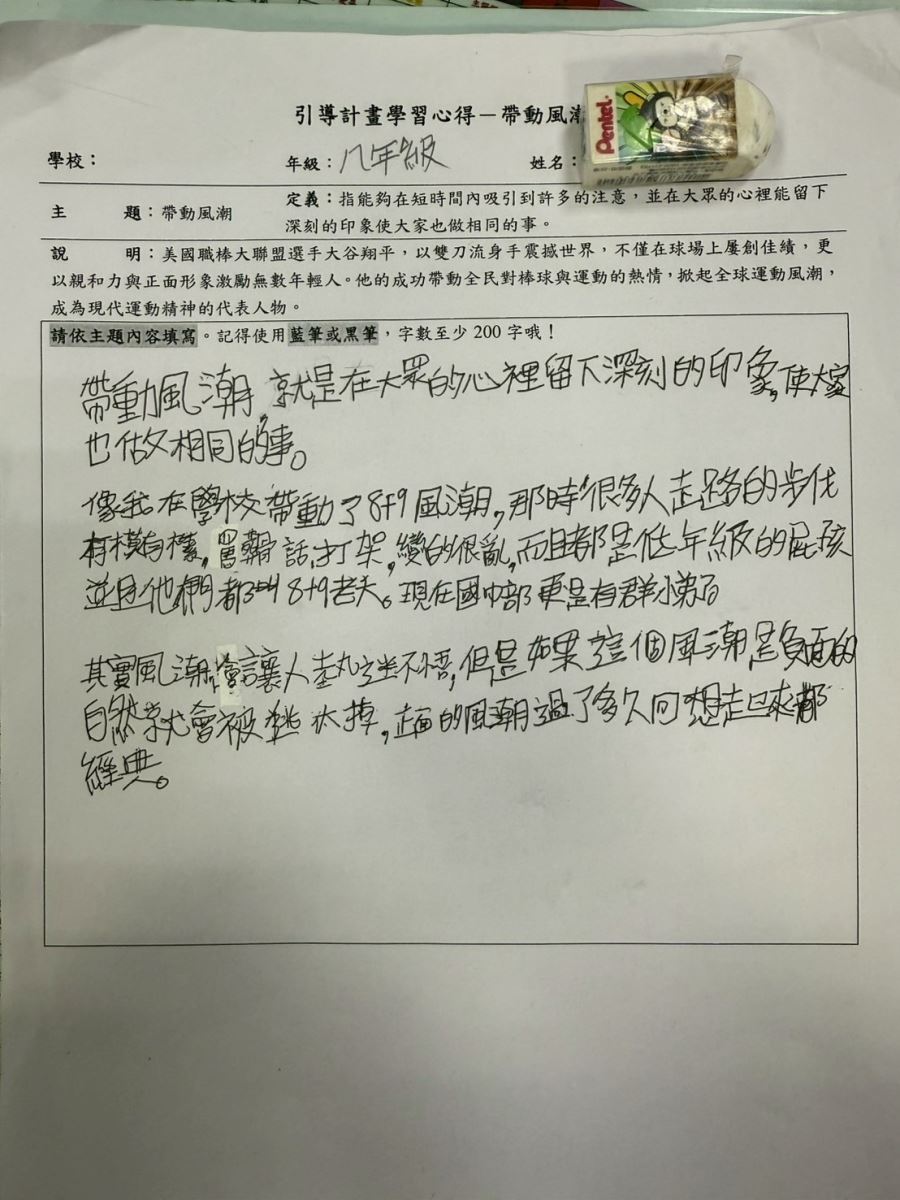 引導計畫學習心得－帶動風潮
學校：
年級：八年級
姓名：
Pentel
主 題：帶動風潮
定義：指能夠在短時間內吸引到許多的注意，並在大眾的心裡能留下
深刻的印象使大家也做相同的事。
說 明：美國職棒大聯盟選手大谷翔平，以雙刀流身手震撼世界，不僅在球場上屢創佳績，更
以親和力與正面形象激勵無數年輕人。他的成功帶動全民對棒球與運動的熱情，掀起全球運動風潮，
成為現代運動精神的代表人物。
請依主題內容填寫。記得使用藍筆或黑筆，字數至少 200 字哦！
帶動風潮，就是在大眾的心裡留下深刻的印象，使大家
也做相同的事。
像我在學校帶動了8+9風潮，那時很多人走路的步伐
有模有樣，話，打架，變的很亂，而且都是低年級的屁孩
並且他們都叫8+9老大。現在國中部更是有群小弟了
其實風潮，會讓人執迷不悟，但是如果這個風潮是負面的
自然就會被淘汰掉，正面的風潮過了多久回想起來都
經典。